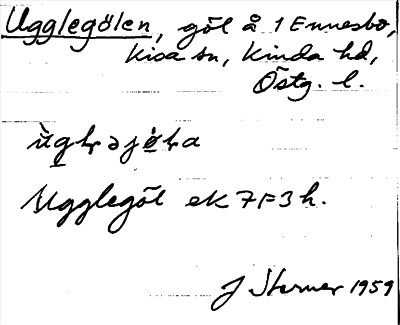 Ugglegölen, göl å 1 Ennesbo,
Kisa sn, Kinda hd,
Östg. l.
ùgḷəjø̀ḷa
Ugglegöl ek 7F3h.
J Sterner 1959